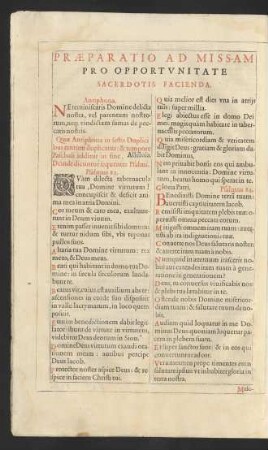 PRÆPARATIO AD MISSAM
PRO OPPORTVNITATE
SACERDOTIS FACIENDA.
Antiphona.
NE reminiscaris Domine delicta
nostra, vel parentum nostro-
rum, neq; vindictam sumas de pec-
catis nostris.
Quæ Antiphona in festis Duplici-
bus tantum duplicatur: & tempore
Paschali additur in fine, Alleluia.
Deinde dicuntur sequentes Psalmi.
Psalmus 83.
QVam dilecta tabernacula
tua, Domine virtutum!
concupiscit & deficit ani-
ma mea in atria Domini.
Cor meum & caro mea, exultaue-
runt in Deum viuum.
Etenim passer inuenit sibi domum:
& turtur nidum sibi, vbi reponat
pullos suos.
Altaria tua Domine virtutum: rex
meus, & Deus meus.
Beati qui habitant in domo tua Do-
mine: in sæcula sæculorum lauda-
bunt te.
Beatus vir, cuius est auxilium abs te:
ascensiones in corde suo disposuit
in valle lacrymarum, in loco quem
posuit.
Etenim benedictionem dabit legis-
lator, ibunt de virtute in virtutem,
videbitur Deus deorum in Sion.
Domine Deus virtutum exaudi ora-
tionem meam: auribus percipe
Deus Iacob.
Protector noster aspice Deus: & re-
spice in faciem Christi tui.
Quia melior est dies vna in atrijs
tuis: super millia.
Elegi abiectus esse in domo Dei
mei: magis quàm habitare in taber-
naculis peccatorum.
Quia misericordiam & veritatem
diligit Deus: gratiam & gloriam da-
bit Dominus.
Non priuabit bonis eos qui ambu-
lant in innocentia: Domine virtu-
tum, beatus homo qui sperat in te.
Gloria Patri.
Psalmus 84.
BEnedixisti Domine terram tuam:
auertisti captiuitatem Iacob.
Remisisti iniquitatem plebis tuæ: ope-
ruisti omnia peccata eorum.
Mitigasti omnem iram tuam: auer-
tisti ab ira indignationis tuæ.
Conuerte nos Deus salutaris noster:
& auerte iram tuam à nobis.
Nunquid in æternum irasceris no-
bis?
Deus tu conuersus viuificabis nos:
& plebs tua lætabitur in te.
Ostende nobis Domine misericor-
diam tuam: & salutare tuum da no-
bis.
Audiam quid loquatur in me Do-
minus Deus: quoniam loquetur pa-
cem in plebem suam.
Et super sanctos suos: & in eos qui
conuertuntur ad cor.
Veruntamen prope timentes eum
salutare ipsius: vt inhabitet gloria in
terra nostra.